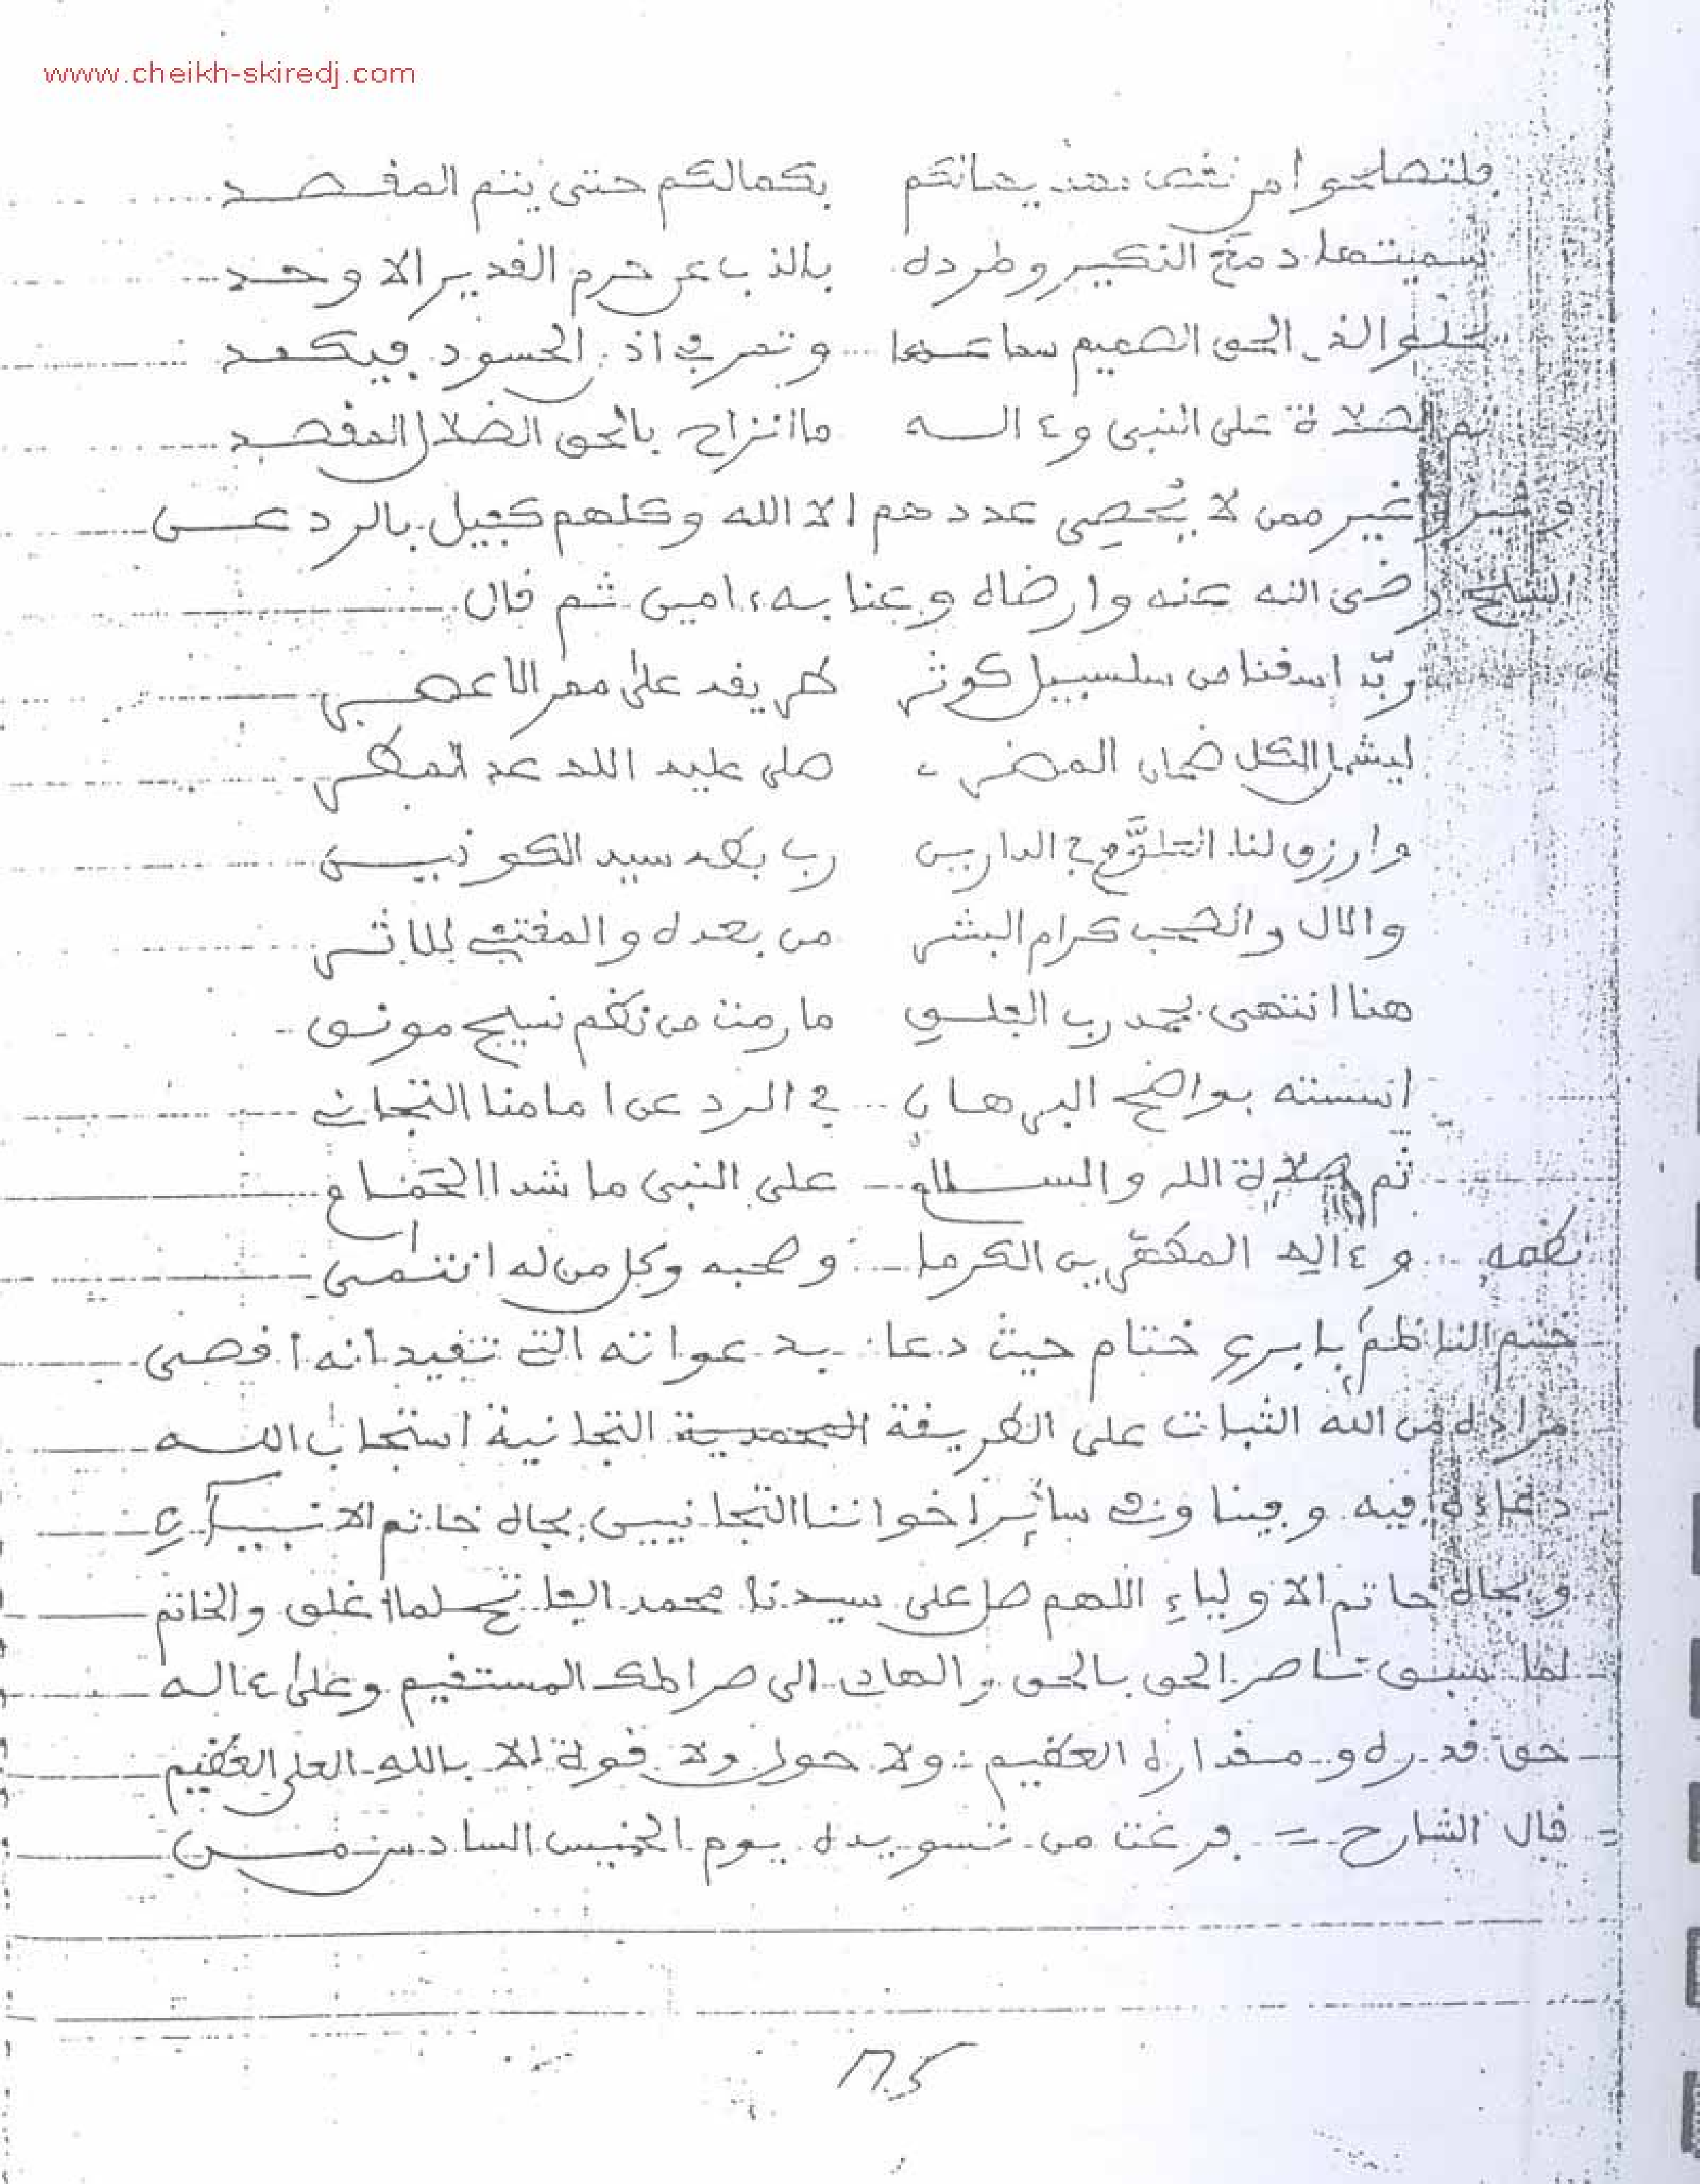 www.cheikh-skiredj.com
فلتصلحوا من بكمالكم حتى يتم المقصد
سميتها دمغ النكير وطرده بالذب عن حرم القدير الاوحد
الحق الصميم وتعر في اذن الحسود فيكمد
ثم الصلاة على النبي وءاله ما انزاح بالحق الضلال
وغير ممن لا يُحصِي عددهم الا الله وكلهم كفيل بالرد عن
الشيخ رضى الله عنه وارضاه وعنا به، امين ثم قال
ربّ اسقنا من سلسبيل كوثر طه يفد على ممر الاعصر
ليشمل الكل ضمان المضر صلى عليه الله عد المطر
وارزق لنا في الدارين رب بطه سيد الكونين
والال والصحب كرام البشر من بعده والمقتفي للاثر
هنا انتهى بحمد رب الفلق ما رمت من نظم نسيج مونق
اسسته بواضح البرهان في الرد عن امامنا التجاني
ثم صلاة الله والسلام على النبي ما شدا الحمام
وءاله المطهرين الكرما وصحبه وكل من له انتمى
نظمه
ختم الناظم بابرع ختام حيث دعا بدعواته التي تفيد انه اقصى
مراده من الله الثبات على الطريقة المحمدية التجانية استجاب الله
دعاءه فيه وفينا وفي سائر اخواننا التجانيين بجاه خاتم الانبياء
وبجاه خاتم الاولياءِ اللهم صل على سيدنا محمد الفاتح لما اغلق والخاتم
لما سبق ناصر الحق بالحق والهادي الى صراطك المستقيم وعلى ءاله
حق قدره ومقداره العظيم ولا حول ولا قوة الا بالله العلي العظيم
قال الشارح = فرغت من تسويده يوم الخميس السادس من